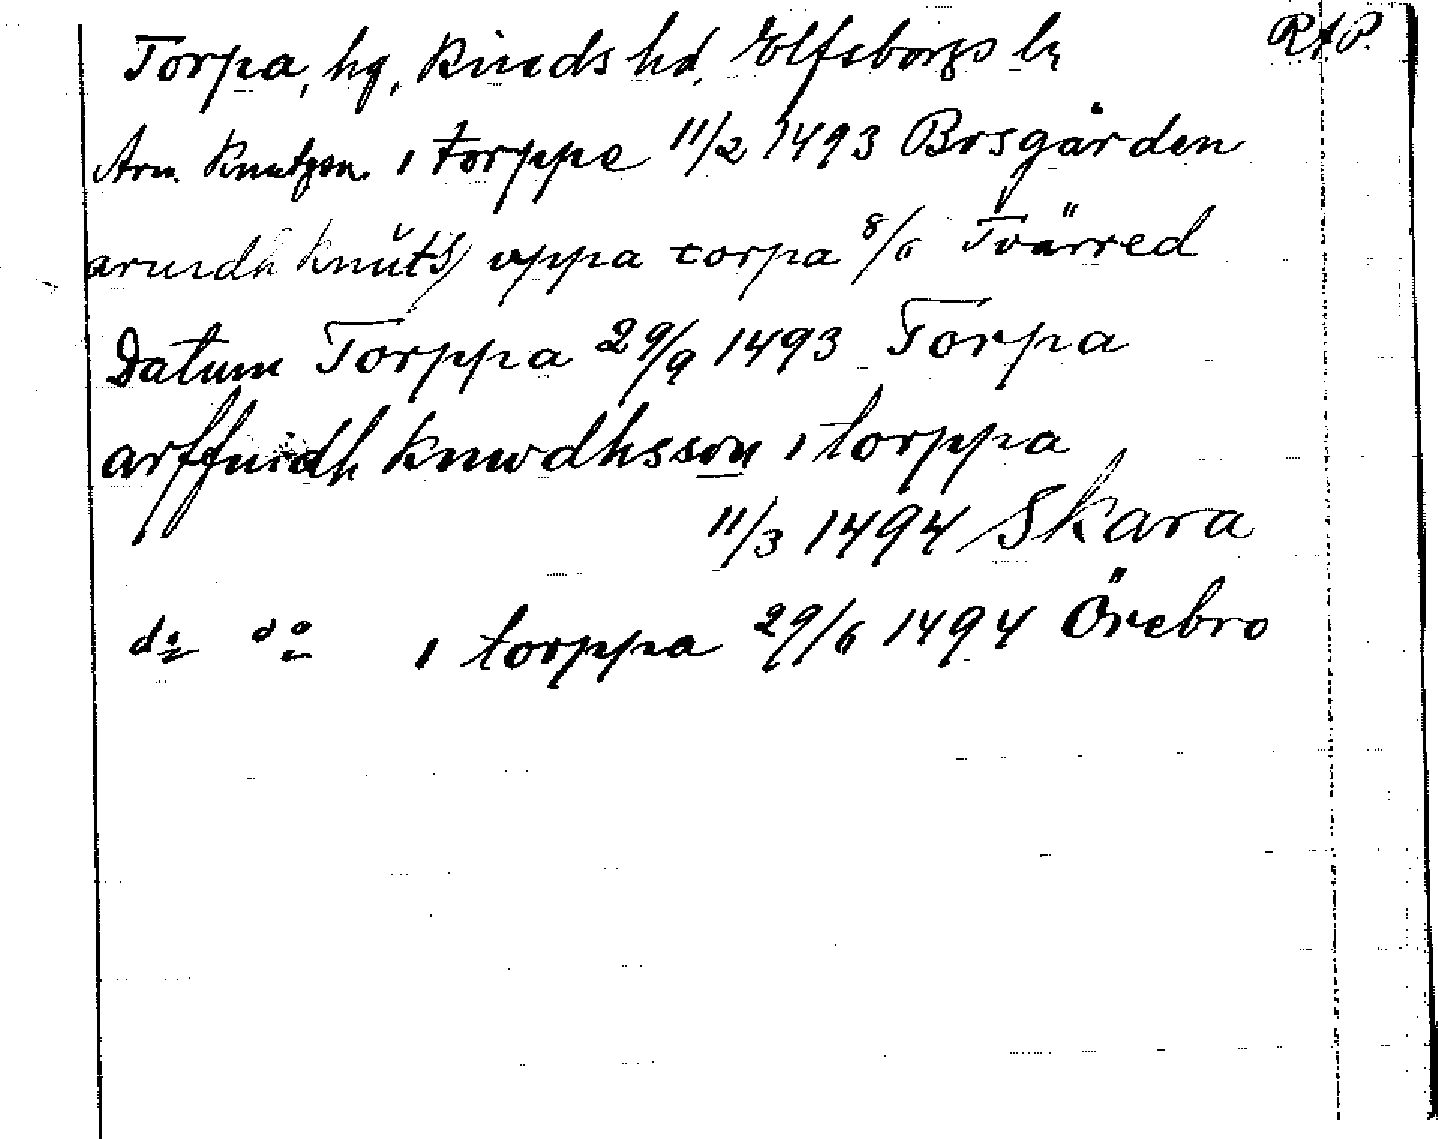 Torpa, hg, Kinds hd, Elfsborgs l. RAP.
Arn. Knutzon i torppe 11/2 1493 Bosgården
aruidh knŭts) uppa torpa 8/6 Tvärred
Datum Torppa 29/9 1493 Torpa
arffuidh knwdhsson i torppa
11/3 1494 Skara
do do i torppa 29/6 1494 Örebro